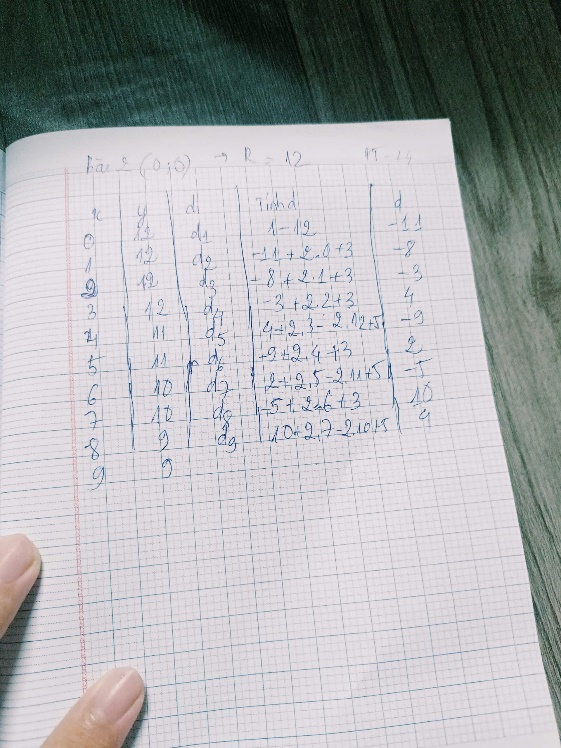 Bài 2 (0;0) → R = 12
x y di Tính d d
0 12 d1 1-12 -11
1 12 d2 -11+2.0+3 -8
2 12 d3 -8+2.1+3 -3
3 12 d4 -3+2.2+3 4
4 11 d5 4+2.3-2.12+5 -9
5 11 d6 -9+2.4+3 2
6 10 d7 2+2.5-2.11+5 -5
7 10 d8 -5+2.6+3 10
8 9 d9 10+2.7-2.10+5 9
9 9